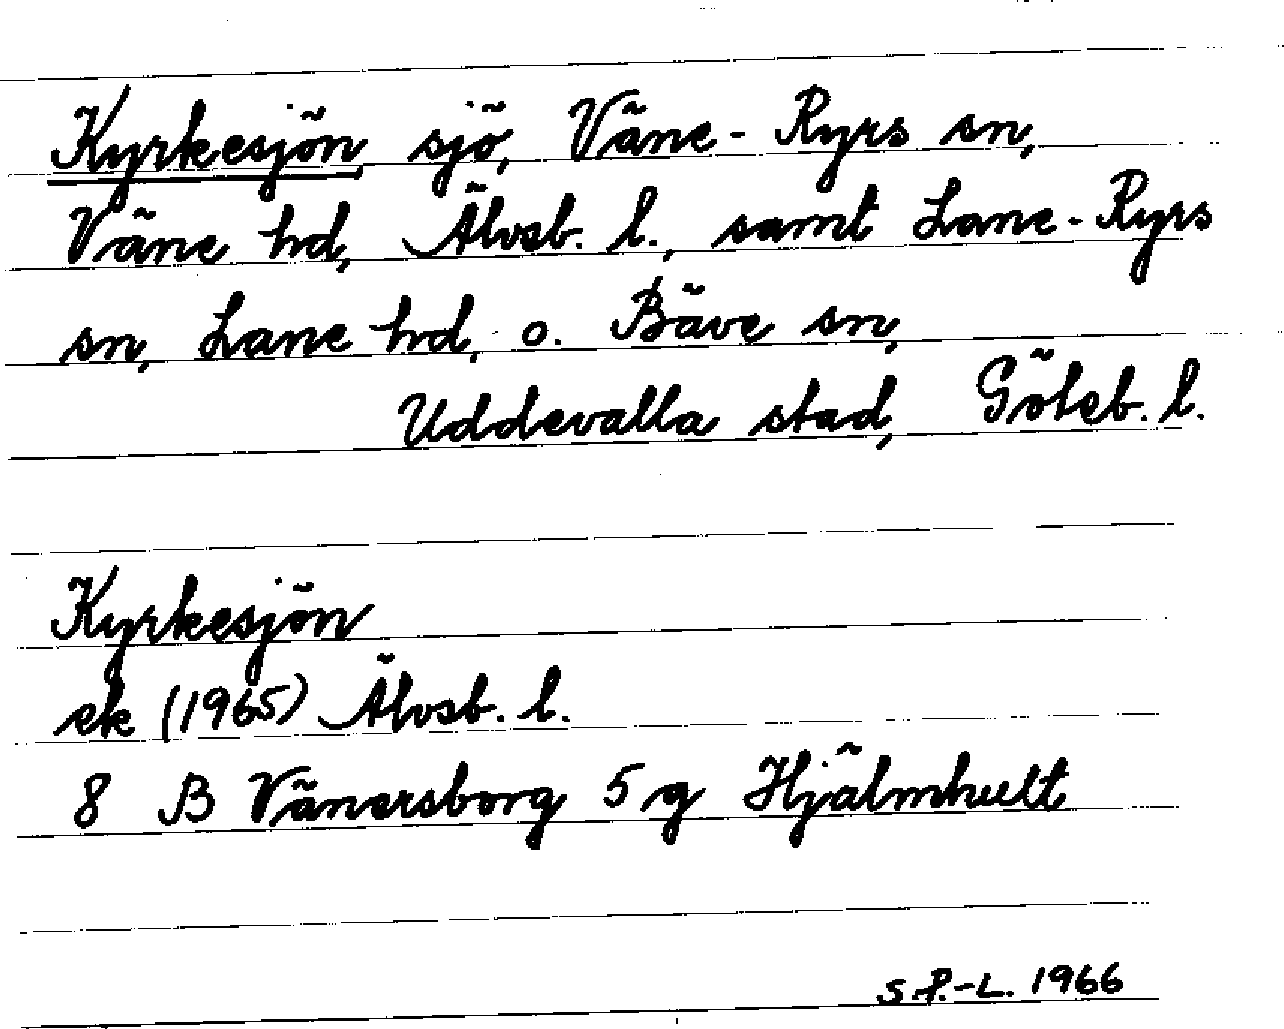 Kyrkesjön sjö, Väne-Ryrs sn,
Väne hd, Älvsb. l., samt Lane-Ryrs
sn, Lane hd, o. Bäve sn,
Uddevalla stad, Göteb. l.
Kyrkesjön
ek (1965) Älvsb. l.
8 B Vänersborg 5 g Hjälmhult
S.P.-L. 1966